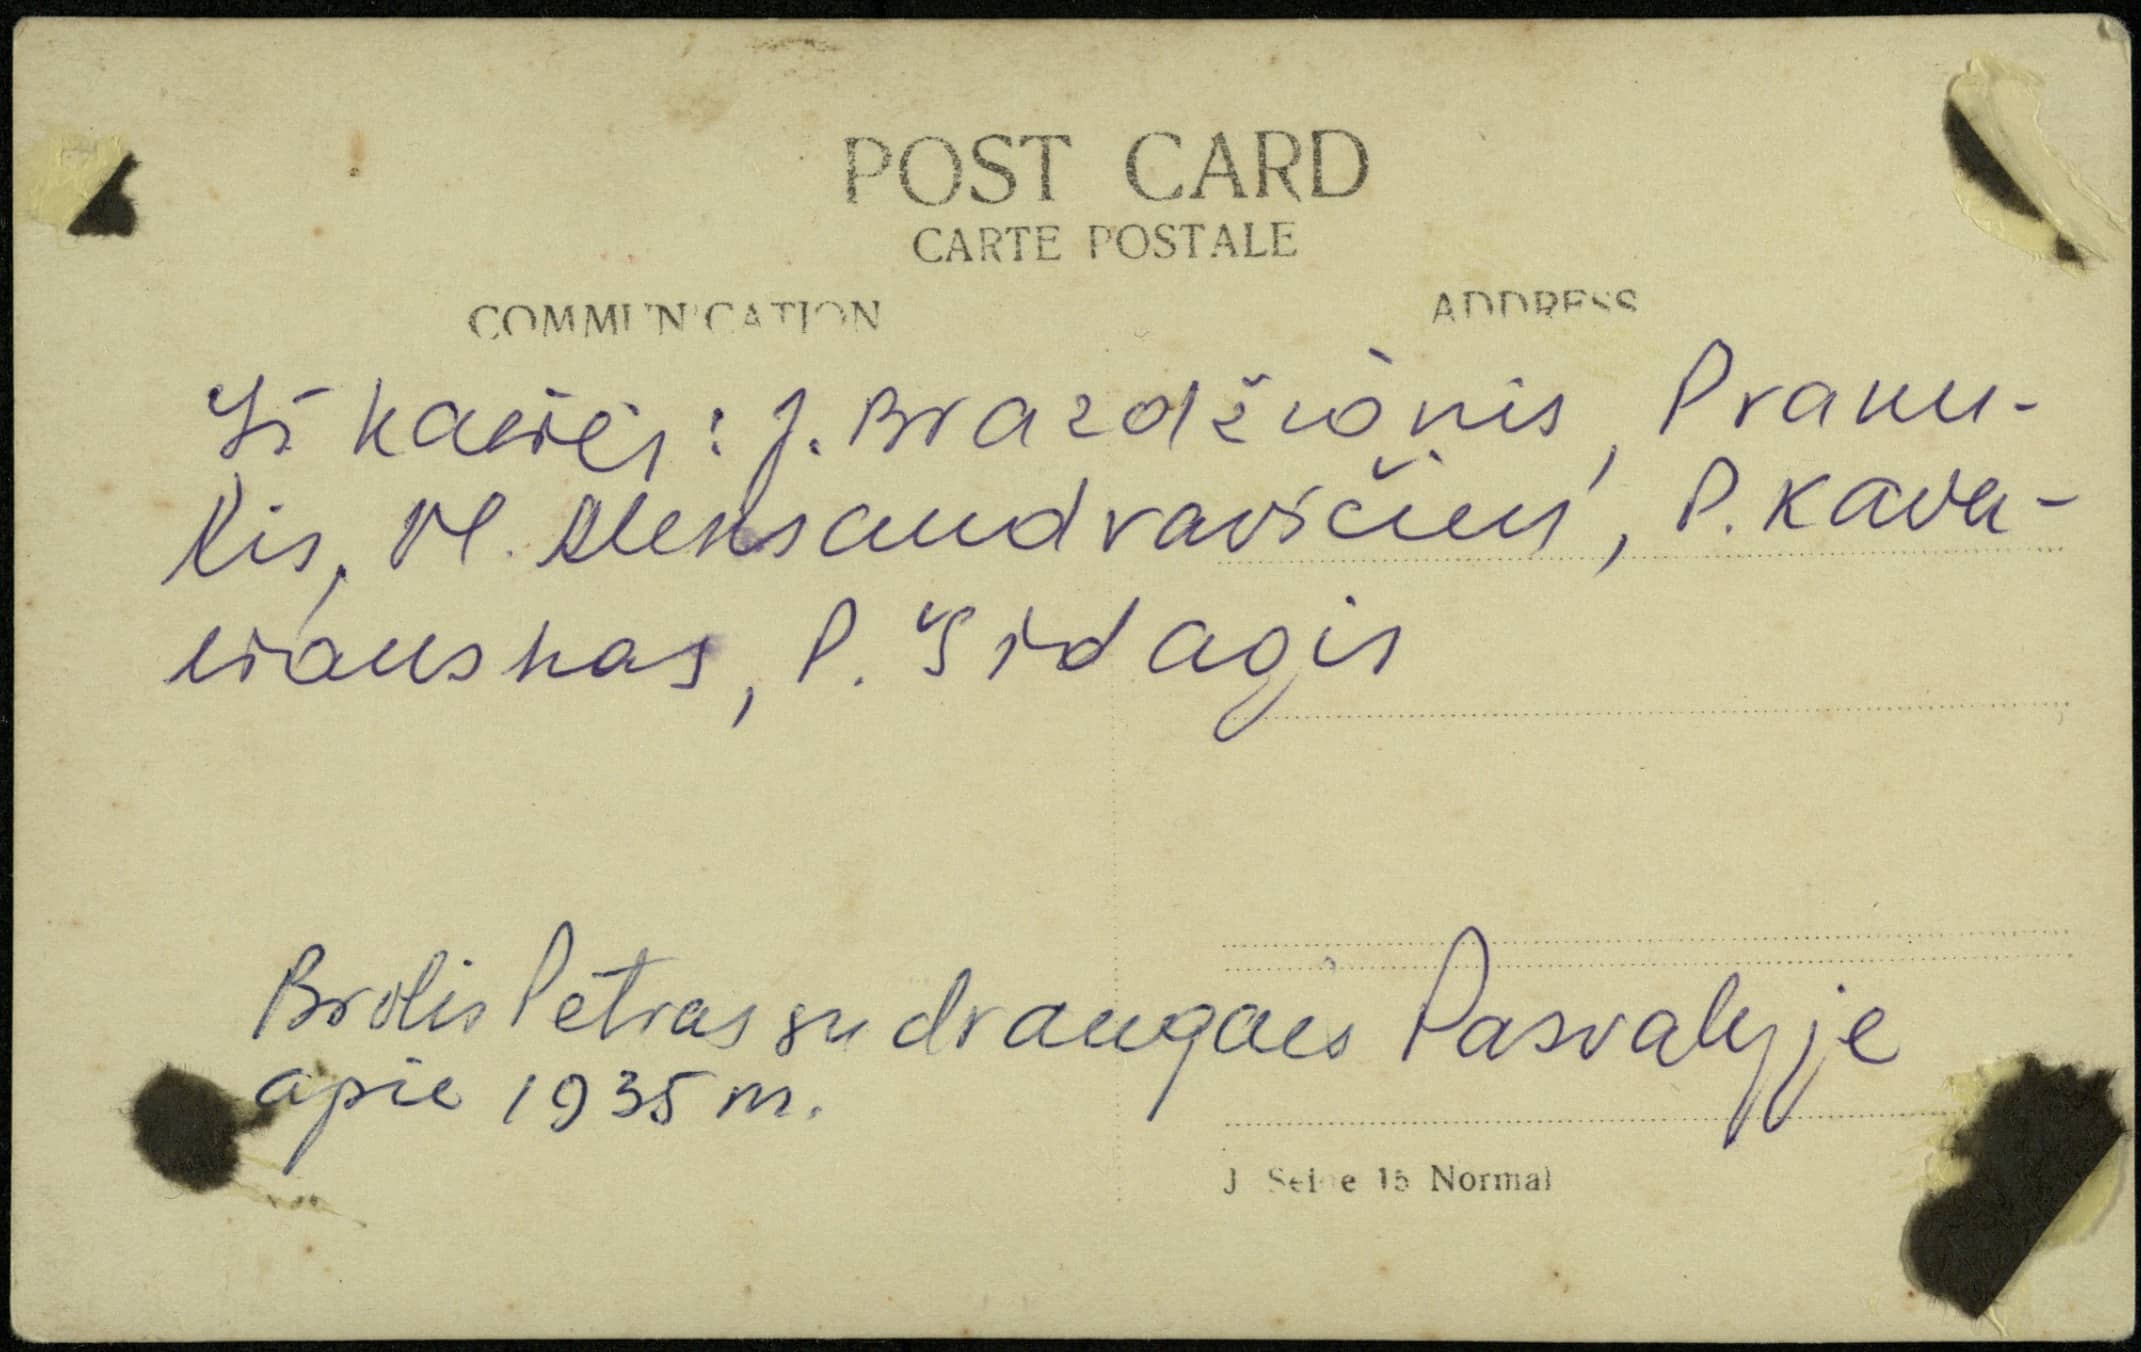 POST CARD
CARTE POSTALE
COMMUNICATION
ADDRESS
Iš kairės: J. Brazdžionis, Pranu-
kis, Vl. Aleksandravičius, P. Kava-
liauskas, P. Gidagis
Brolis Petras su draugais Pasvalyje
apie 1935 m.
J Seine 15 Normal